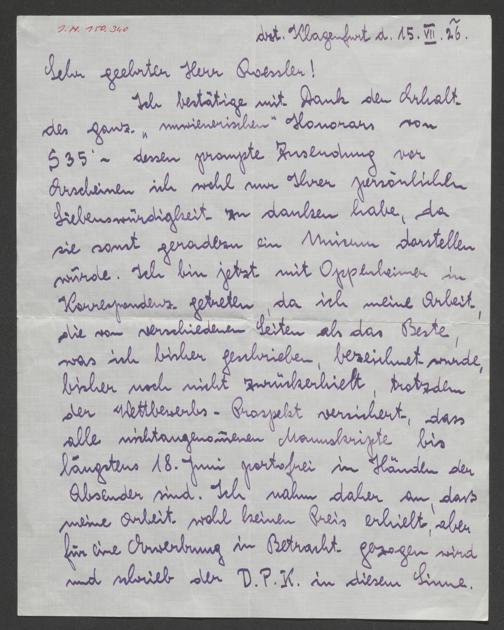 J.N. 150.340
dzt. Klagenfurt d. 15. VII. 26.
Sehr geehrter Herr Roessler!
Ich bestätige mit Dank den Erhalt
des ganz „unwienerischen" Honorars von
S 35'- dessen prompte Zusendung vor
Erscheinen ich wohl nur Ihrer persönlichen
Liebenswürdigkeit zu danken habe, da
sie sonst geradezu ein Unicum darstellen
würde. Ich bin jetzt mit Oppenheimer in
Korrespondenz getreten, da ich meine Arbeit,
die von verschiedenen Seiten als das Beste,
was ich bisher geschrieben, bezeichnet wurde,
bisher noch nicht zurückerhielt, trotzdem
der Wettbewerbs-Prospekt versichert, dass
alle nichtangenom̄enen Manuskripte bis
längstens 18. Juni portofrei in Händen der
Absender sind. Ich nahm daher an, dass
meine Arbeit wohl keinen Preis erhielt, aber
für eine Erwerbung in Betracht gezogen wird
und schrieb der D.P.K. in diesem Sinne.